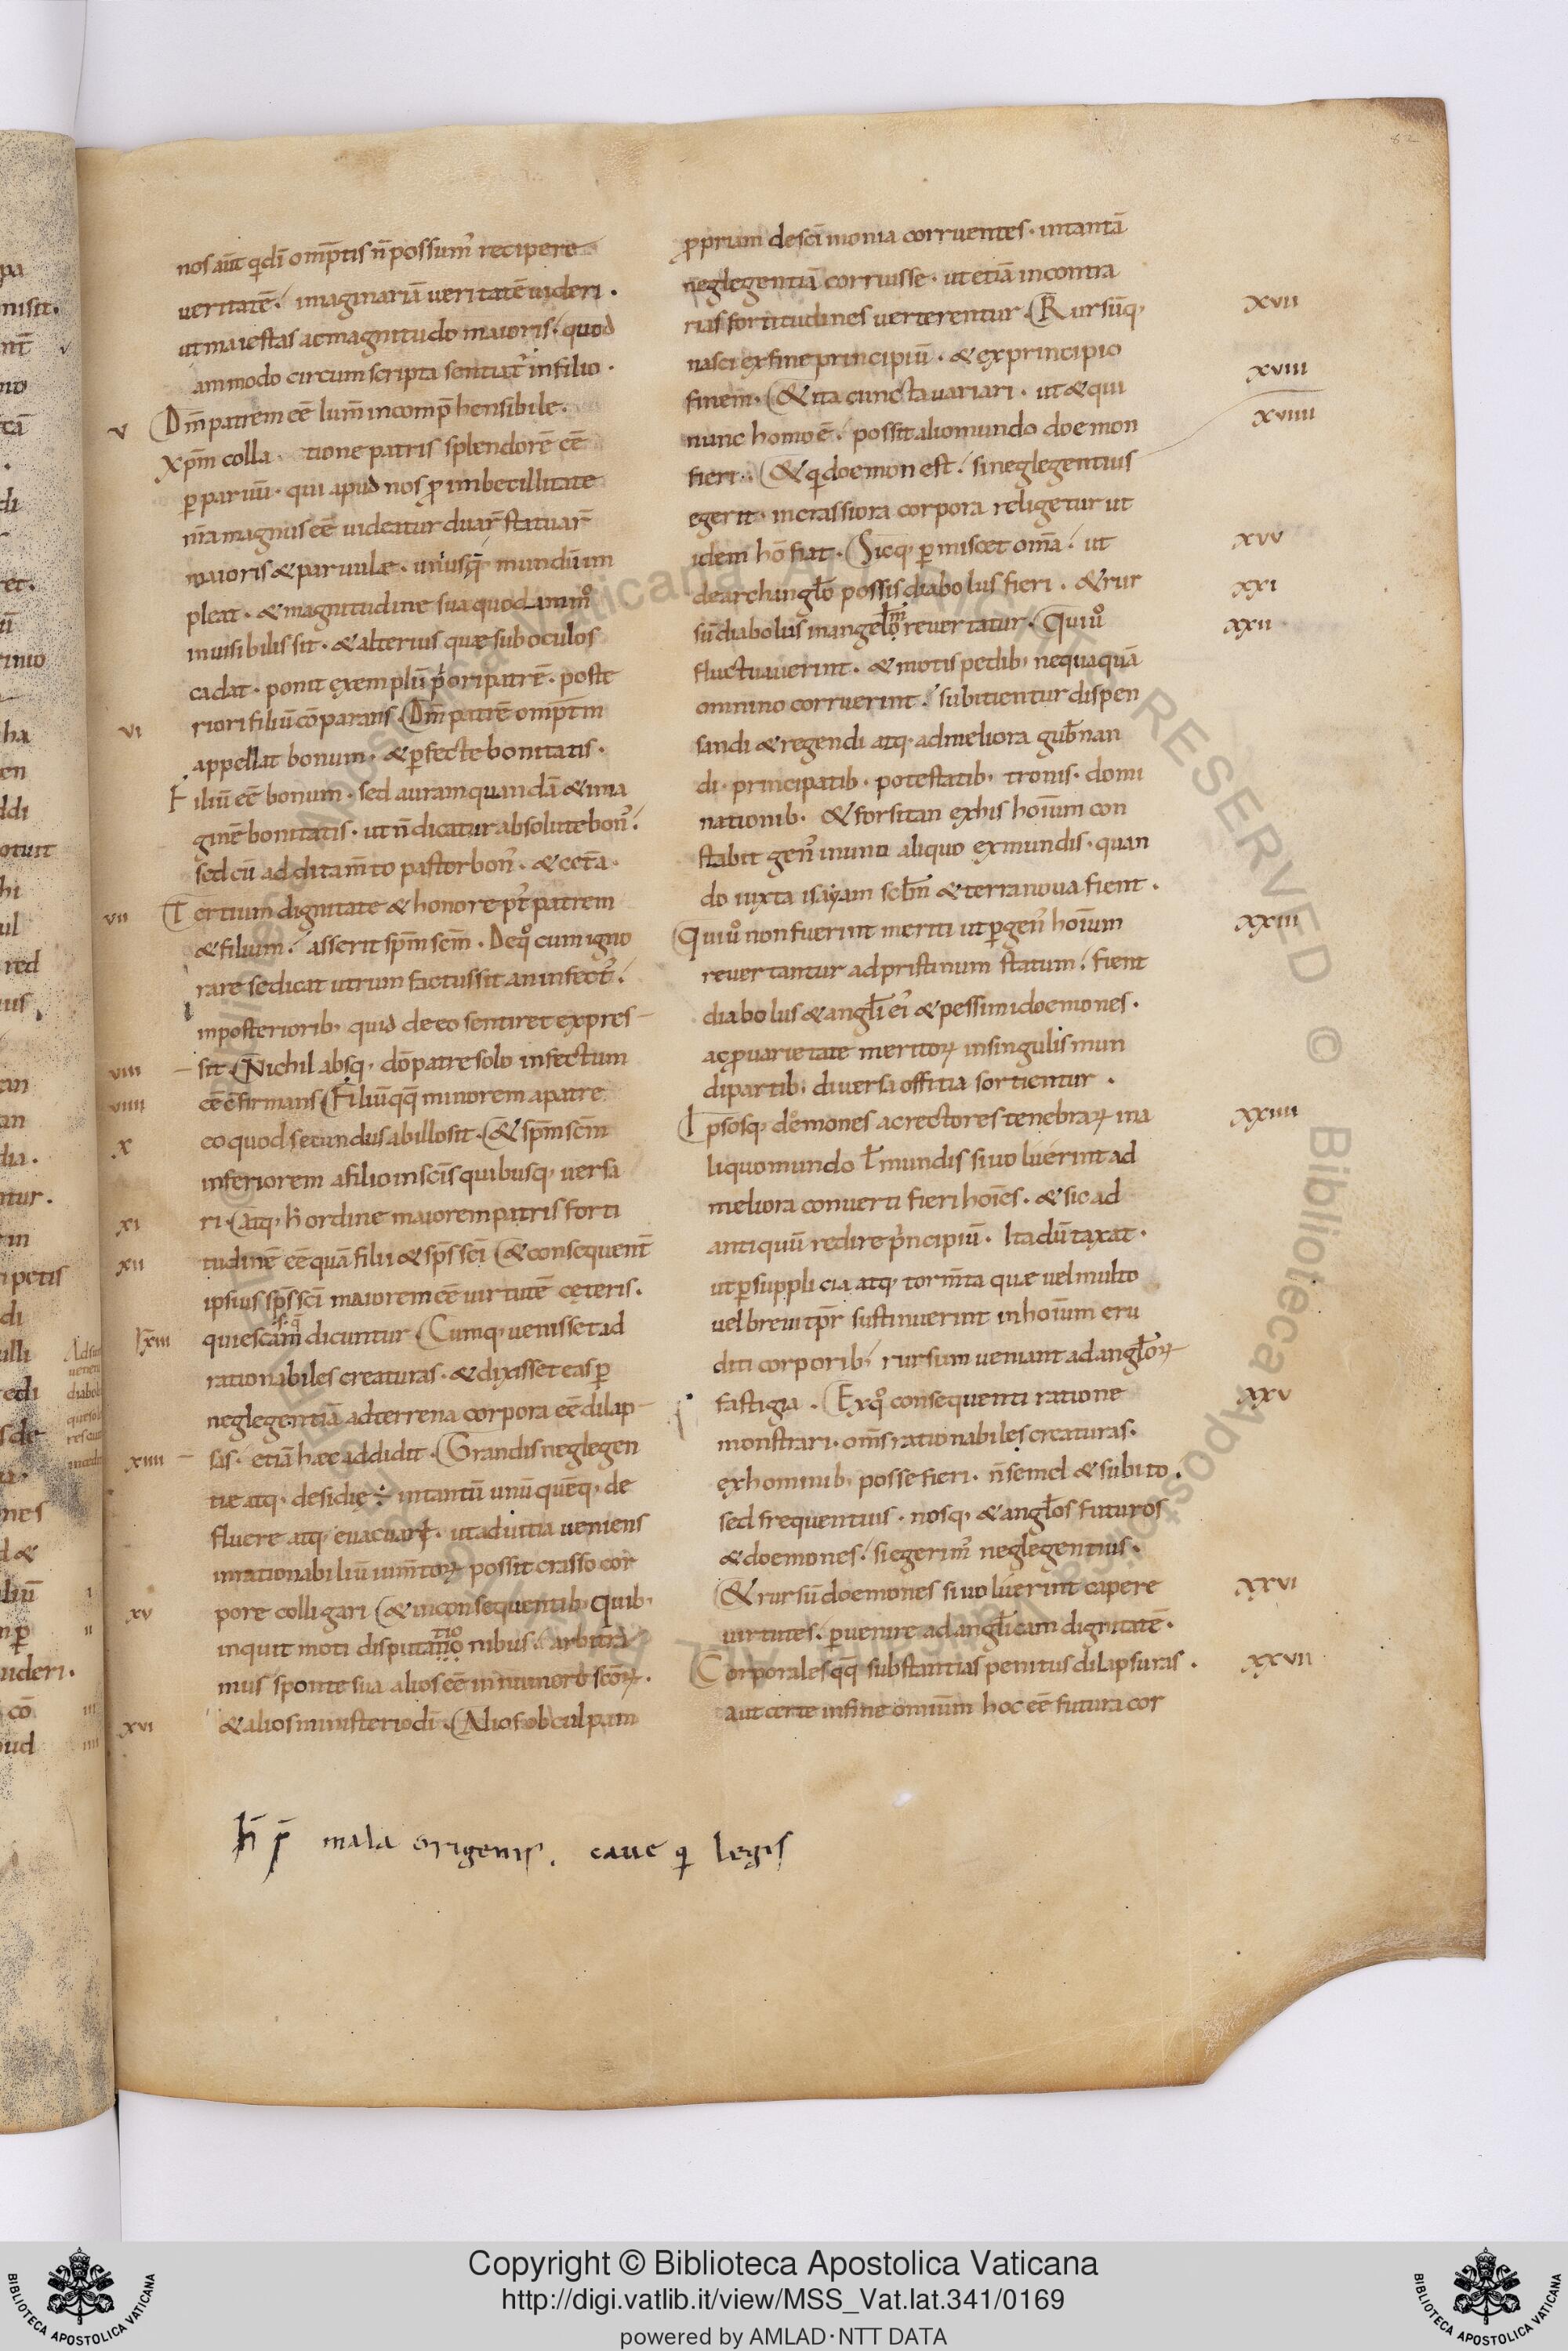 nos aut̄ qͥ dī omp̄tis n̄ possumꝰ recipere
veritatē. imaginariā veritatē uideri.
ut maiestas ac magnitudo maioris. quod
ammodo circumscripta sentiat᷑ in filio.
V
Dm̄ patrem eē lum̄ incomp̄hensibile.
Xpm̄ colla tione patris splendorē eē
ꝑ paruū. qui apud nos ꝓ imbecillitate
nr̄a magnus eē uideatur duar̄ statuar̄
maioris & paruulæ. uniusq̄ mundū im
pleat. & magnitudine sua quodammͦ
inuisibilis sit. & alterius quæ sub oculos
cadat. ponit exemplū pͥori patrē. poste
riori filiū cōparans
VI
Dm̄ patrē omp̄tm
appellat bonum. & ꝑfecte bonitatis.
Filiū eē bonum. sed auram quandā & ima
ginē bonitatis. ut n̄ dicatur absolute bonꝰ.
sed cū additam̄to pastor bonꝰ. & cet̄a.
VII
Tertium dignitate & honore pꝰt patrem
& filium. asserit spm̄ scm̄. De qͦ cum igno
rare se dicat utrum factus sit an infectꝰ.
in posteriorib; quid de eo sentiret expres-
VIII
sit Nichil absq; dō patre solo infectum
VIIII
eē c̄firmans Filiū qq̄ minorem a patre
X
eo quod secundus ab illo sit. & spm̄ scm̄
inferiorem a filio in scīs quibusq; uersa
XI
ri. atq; h̄ ordine maiorem patris forti
XII
tudinē eē quā filii & sps̄ scī & consequent̄
ipsius sps̄ scī maiorem eē uirtutē ceteris.
XIII
quiescam dicuntur Cumq; uenisset ad
rationabiles creaturas. & dixisset eas ꝑ
neglegentiā ad terrena corpora eē dilap-
XIIII
sas. etiā hæc addidit. Grandis neglegen
tiæ atq; desidie ÷ intantū unū quēq; de
fluere atq; euacuari. ut ad uitia ueniens
inrationabiliū ium̄toꝝ possit crasso cor
XV
pore colligari & in consequentib; Quib;
inquit moti disputatio nibus. arbitra
mur sponte sua alios eē in numero scōꝝ.
XVI
& alios ministerio dī. Alios ob culpam
ꝓprum de scimonia corruentes. intantā
neglegentiā corruisse. ut etiā in contra
XVII
rias fortitudines uerterentur. Rursūq;
nasci ex fine principiū. & ex principio
XVIII
finem. & ita cuncta uariari. ut & qui
XVIIII
nunc homo ē. possit alio mundo doemon
fieri. & qͥ doemon est. si neglegentius
egerit. in crassiora corpora religetur ut
XXV
idem hō fiat. Sicq; ꝑmiscet om̄a. ut
XXI
de archanglo possis diabolus fieri. & rur
XXII
sū diabolus in angelū reuertatur. Qui uͦ
fluctuauerint. & motis pedib; nequaquā
omnino corruerint. subitientur dispen
sandi & regendi atq; ad meliora gub̄nan
di. principatib. potestatib; tronis. domi
nationib. & forsitan ex his hoīum con
stabit genꝰ in uno aliquo ex mundis. quan
do iuxta isayam celum & terra noua fient.
XXIII
Qui uͦ non fuerint meriti ut ꝑ genꝰ hoīum
reuertantur ad pristinum statum. fient
diabolus & angli eiꝰ & pessimi doemones.
ac ꝓ uarietate meritoꝝ in singulis mun
di partib; diuersa offitia sortientur.
XXIIII
Ipsosq; demones ac rectores tenebraꝝ in a
liquo mundo ł mundis si uoluerint ad
meliora conuerti fieri hoīes. & sic ad
antiquū redire pͥncipiū. Ita dūtaxat.
ut ꝑ supplicia atq; torm̄ta quæ uel multo
uel breui tp̄r sustinuerint in hoīum eru
diti corporib; rursum ueniant ad angłoꝝ
XXV
fastigia. Ex qͦ consequenti ratione
monstrari. oms̄ rationabiles creaturas.
ex hominib; posse fieri. n̄ semel & subito.
sed frequentius. nosq; & angłos futuros
& doemones. si egerimꝰ neglegentius.
XXVI
& rursū doemones si uoluerint capere
uirtutes. ꝑuenire ad anglicam dignitatē.
XXVII
Corporales qq̄ substantias penitus dilapsuras.
aut certe in fine omnium hoc eē futura cor
mala origenis. caue qͥ legis
Copyright © Biblioteca Apostolica Vaticana
http://digi.vatlib.it/view/MSS_Vat.lat.341/0169
powered by AMLAD·NTT DATA
BIBLIOTECA APOSTOLICA VATICANA
BIBLIOTECA APOSTOLICA VATICANA